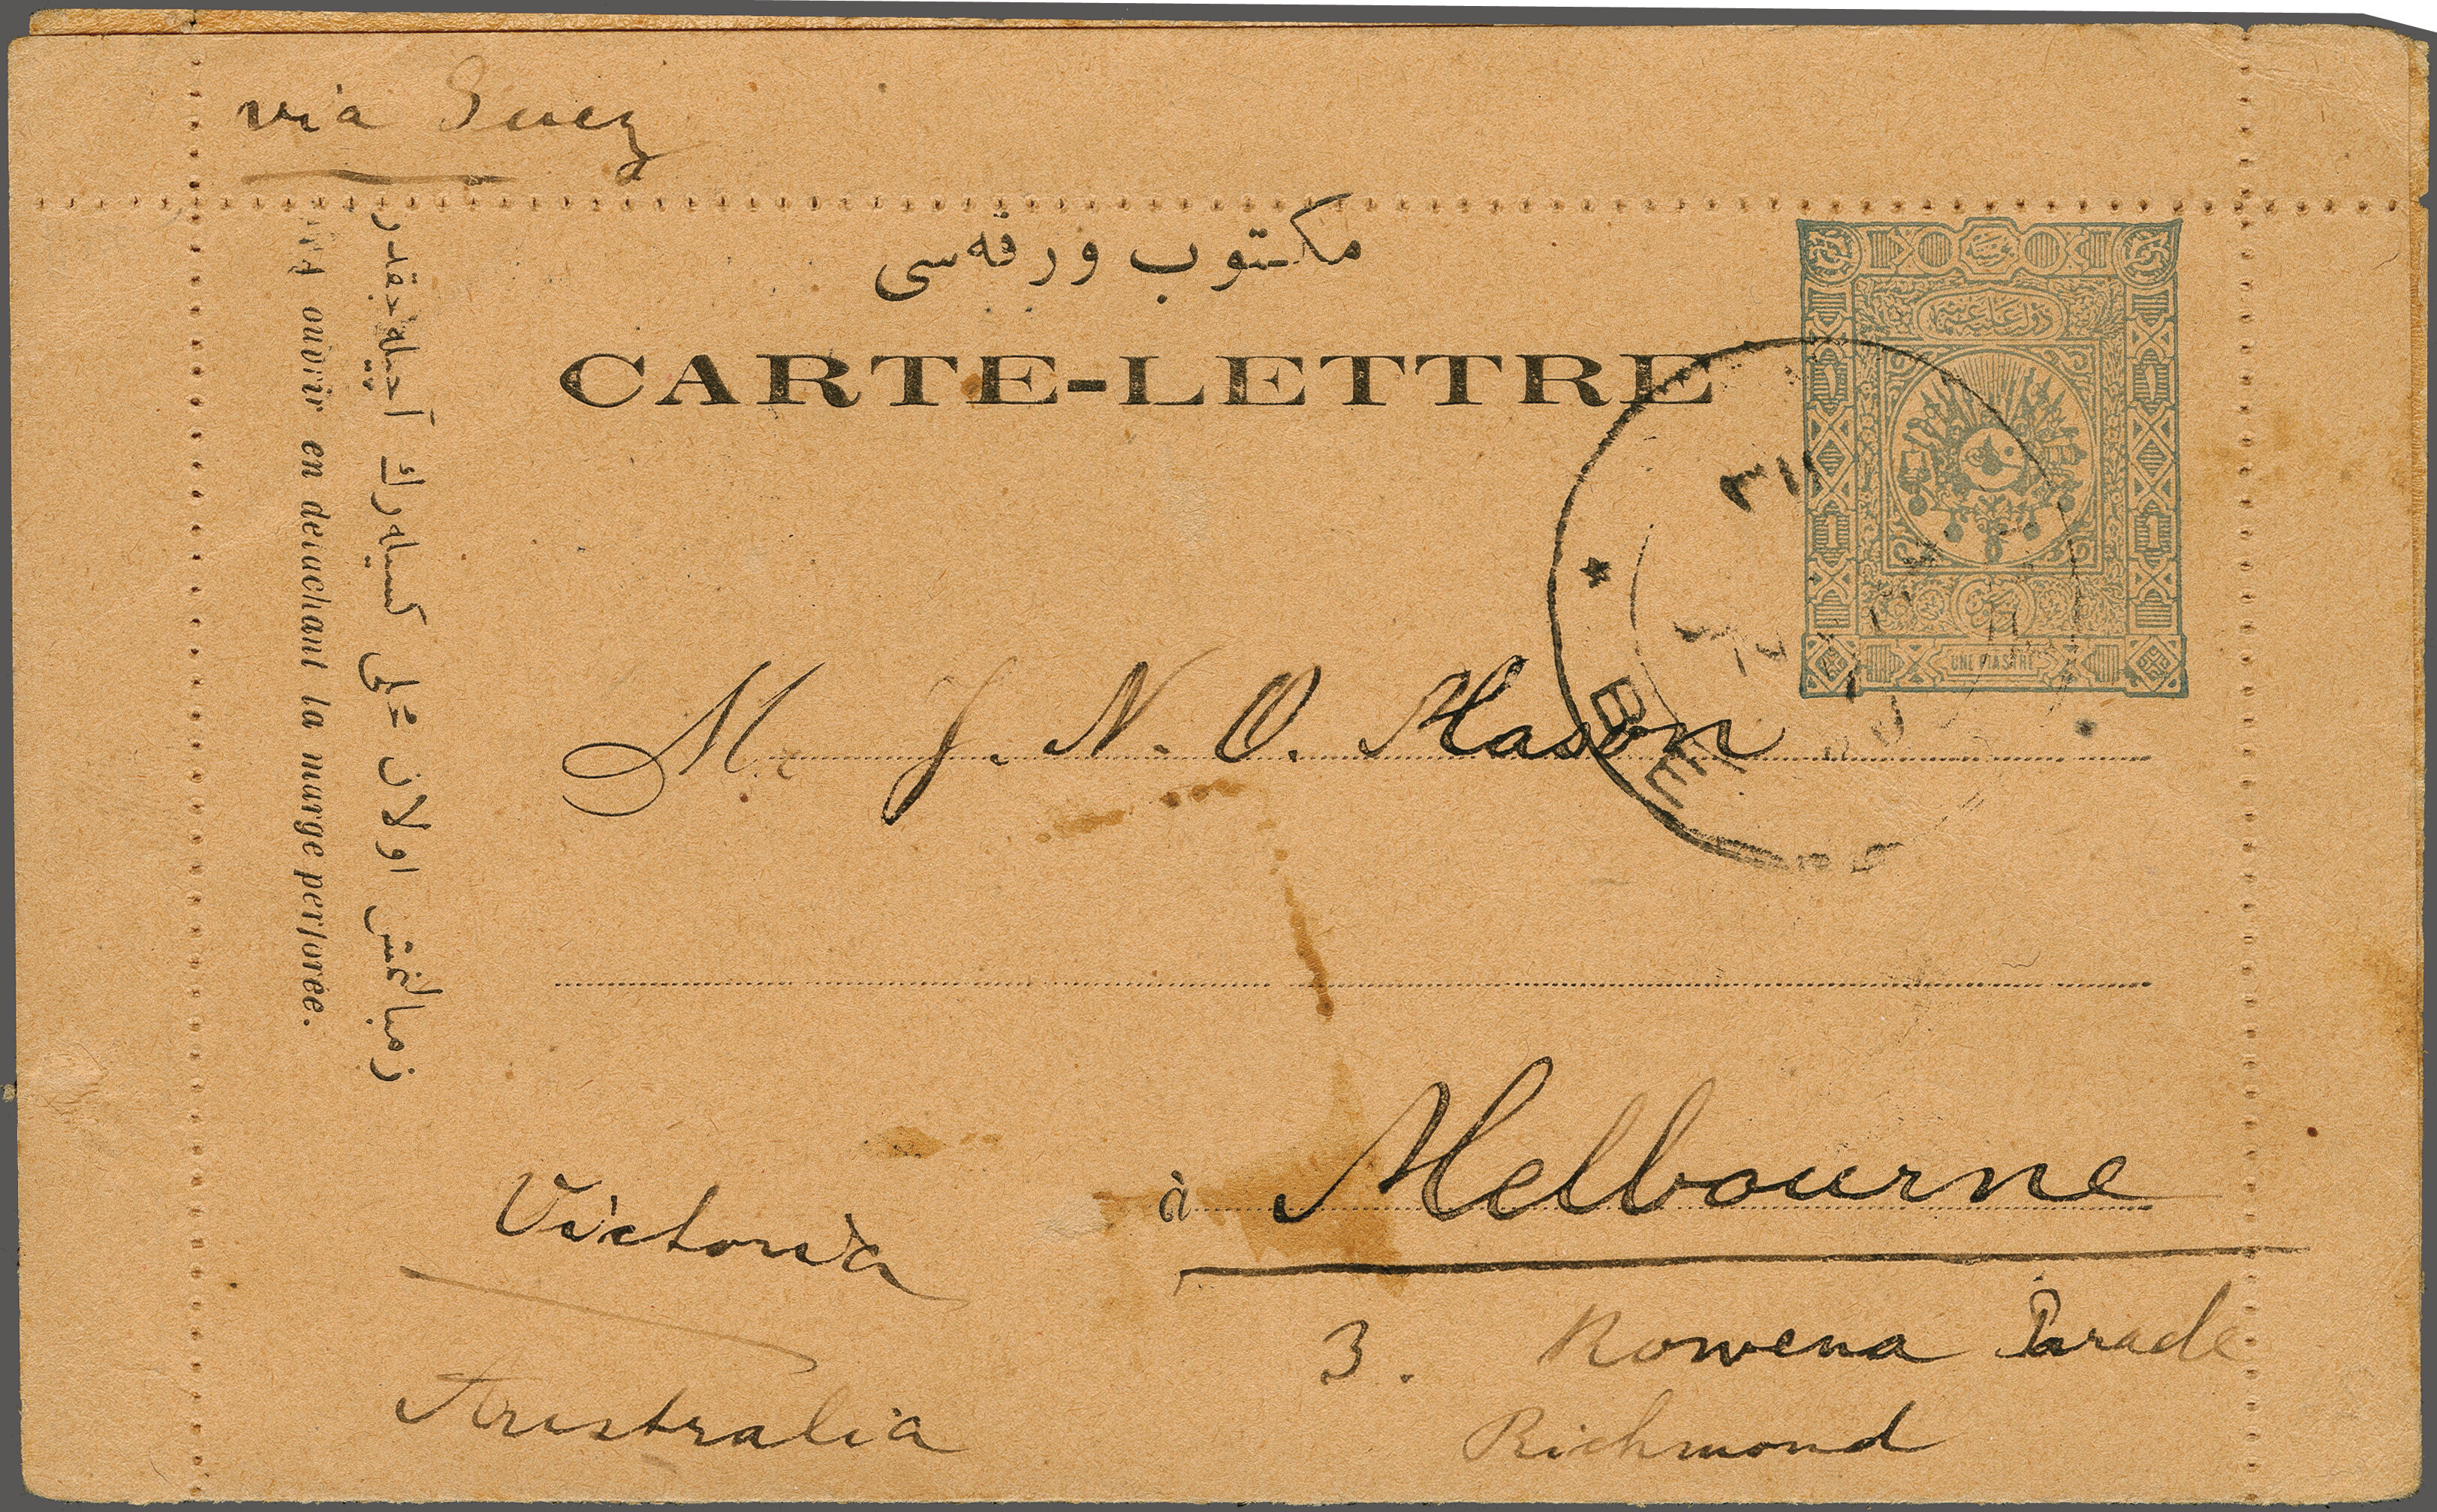 via Suez
مكتوب ورقه‌سی
CARTE-LETTRE
زمبالانمش اولان محلی كسیله‌رك آچیله‌جقدر
ouvrir en détachant la marge perforée.
UNE PIASTRE
BE
M. J. N. O. Mason
à Melbourne
Victoria
3. Rowena Parade
Richmond
Australia